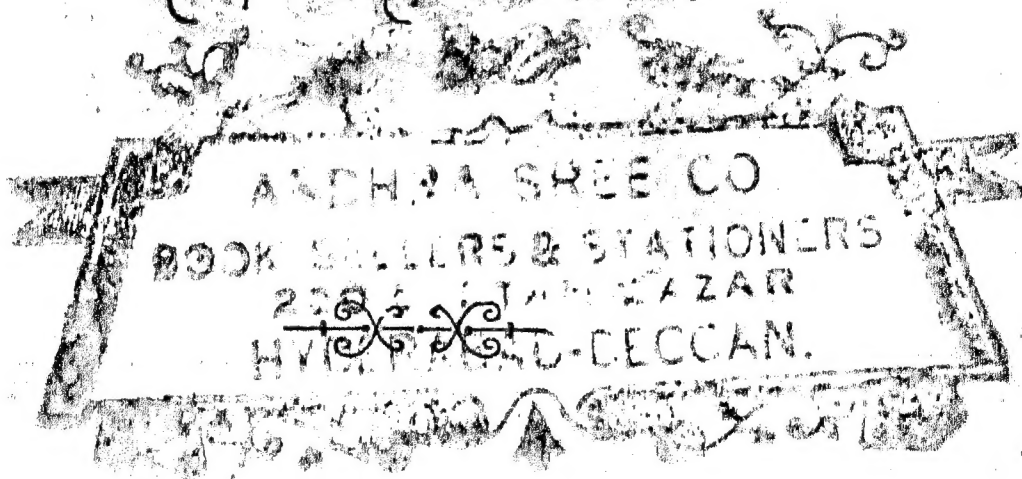 ANDHRA SHREE CO
BOOK SELLERS & STATIONERS
BAZAR
HYDERABAD-DECCAN.